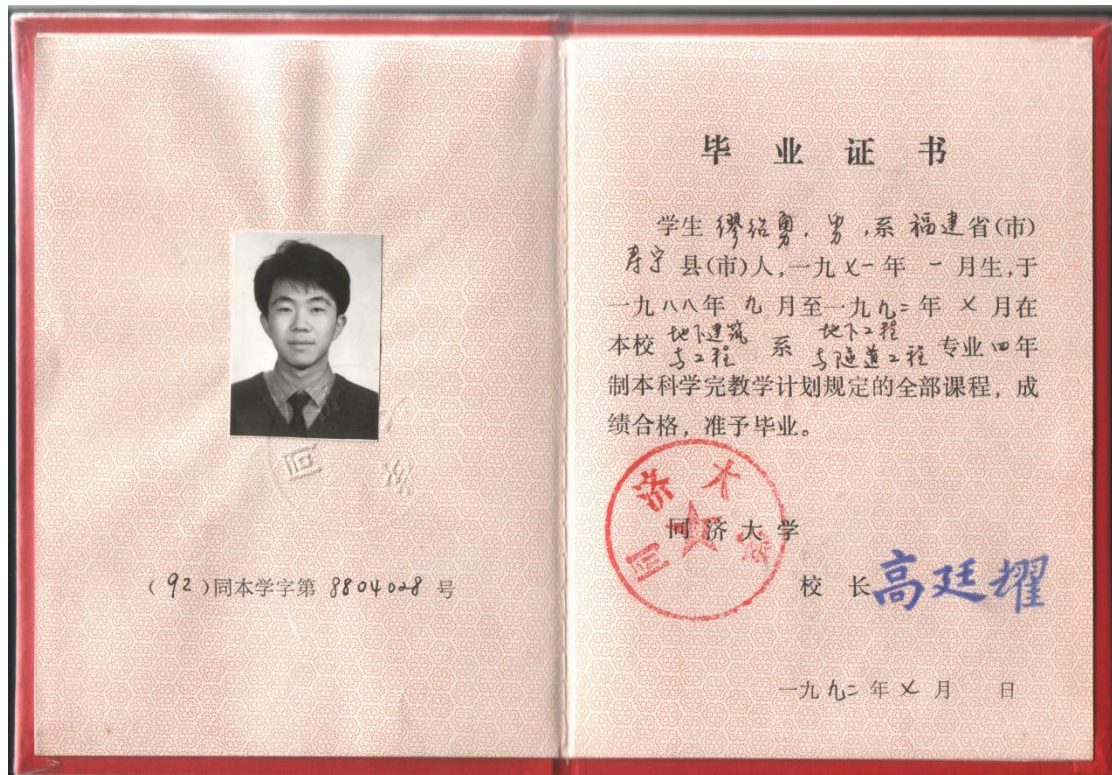 同济
(92)同本学字第 8804028 号
毕业证书
学生 缪绍勇，男，系 福建省(市)
寿宁县(市)人，一九七一年一月生，于
一九八八年九月至一九九二年七月在
本校 地下建筑与工程 系 地下工程与隧道工程 专业四年
制本科学完教学计划规定的全部课程，成
绩合格，准予毕业。
同济大学
同济大学
校长 高廷耀
一九九二年七月 日